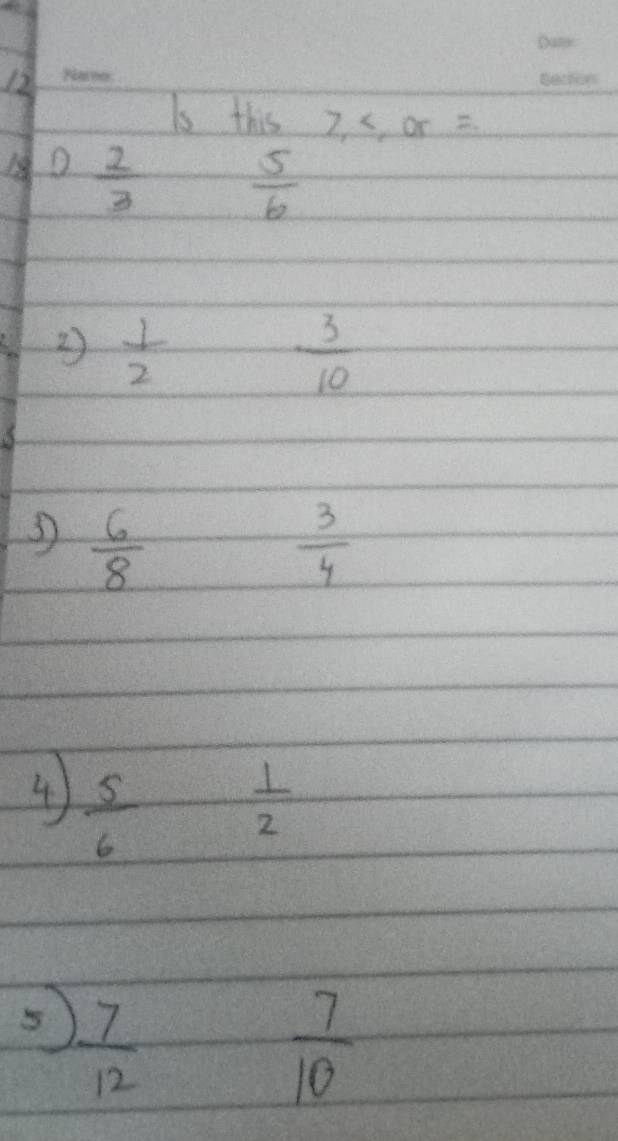 Date:
Name:
Section:
12
Is this >, <, or =.
1) 2/3 5/6
2) 1/2 3/10
3) 6/8 3/4
4) 5/6 1/2
5) 7/12 7/10